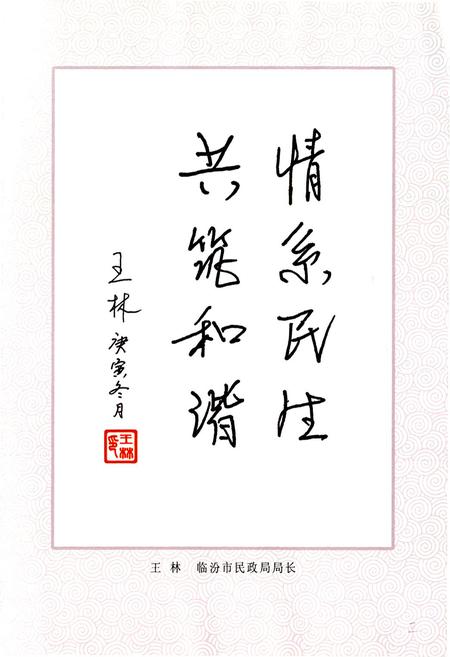 情系民生
共筑和谐
王林 庚寅冬月
王林印
王 林 临汾市民政局局长